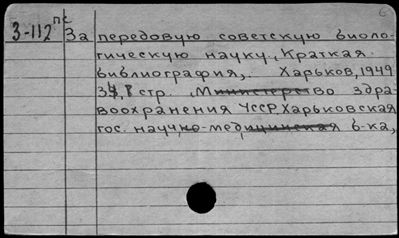 3-112 пс
За передовую советскую биоло-
гическую науку. Краткая
библиография. Харьков, 1949
стр. Министерство здра-
воохранения УССР. Харьковская
гос. научно-медицинская б-ка,